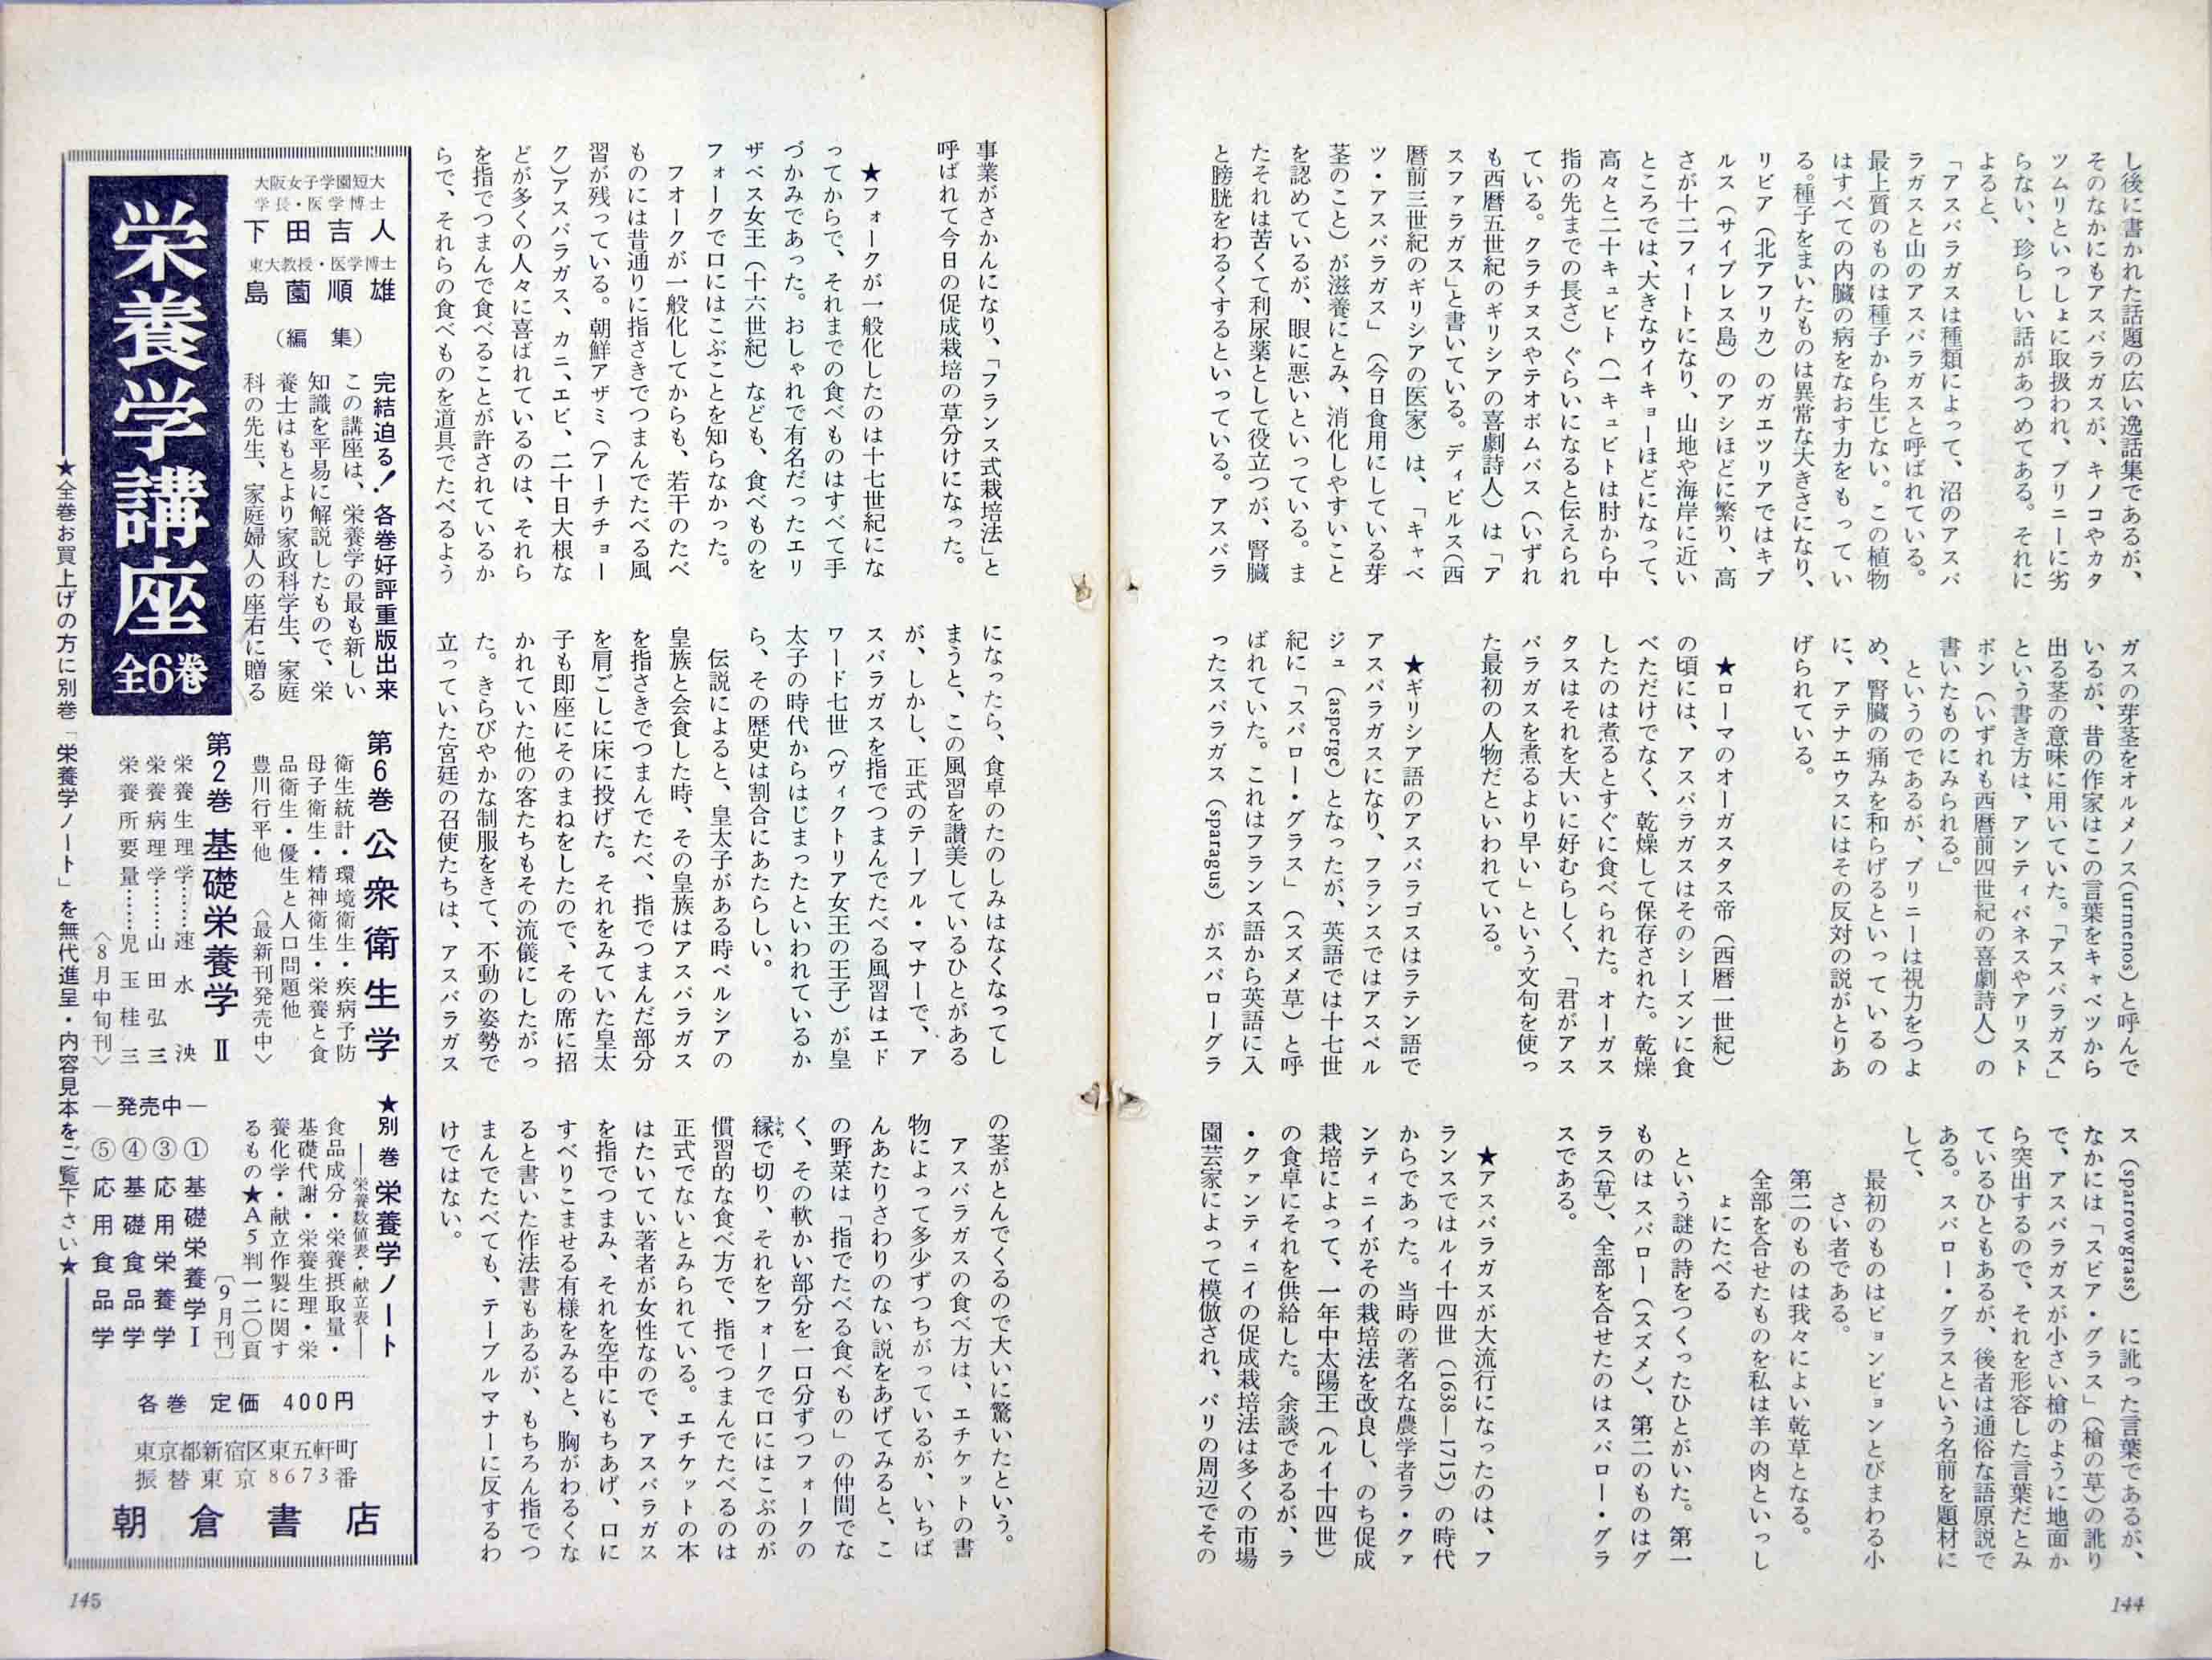 し後に書かれた話題の広い逸話集であるが、
そのなかにもアスパラガスが、キノコやカタ
ツムリといっしょに取扱われ、プリニーに劣
らない、珍らしい話があつめてある。それに
よると、
「アスパラガスは種類によって、沼のアスパ
ラガスと山のアスパラガスと呼ばれている。
最上質のものは種子から生じない。この植物
はすべての内臓の病をなおす力をもってい
る。種子をまいたものは異常な大きさになり、
リビア（北アフリカ）のガエツリアではキプ
ルス（サイプレス島）のアシほどに繁り、高
さが十二フィートになり、山地や海岸に近い
ところでは、大きなウイキョーほどになって、
高々と二十キュビト（一キュビトは肘から中
指の先までの長さ）ぐらいになると伝えられ
ている。クラチヌスやテオポムパス（いずれ
も西暦五世紀のギリシアの喜劇詩人）は「ア
スファラガス」と書いている。ディピルス（西
暦前三世紀のギリシアの医家）は、「キャベ
ツ・アスパラガス」（今日食用にしている芽
茎のこと）が滋養にとみ、消化しやすいこと
を認めているが、眼に悪いといっている。ま
たそれは苦くて利尿薬として役立つが、腎臓
と膀胱をわるくするといっている。アスパラ
ガスの芽茎をオルメノス(urmenos)と呼んで
いるが、昔の作家はこの言葉をキャベツから
出る茎の意味に用いていた。「アスパラガス」
という書き方は、アンティパネスやアリスト
ポン（いずれも西暦前四世紀の喜劇詩人）の
書いたものにみられる。」
というのであるが、プリニーは視力をつよ
め、腎臓の痛みを和らげるといっているの
に、アテナエウスにはその反対の説がとりあ
げられている。
★ローマのオーガスタス帝（西暦一世紀）
の頃には、アスパラガスはそのシーズンに食
べただけでなく、乾燥して保存された。乾燥
したのは煮るとすぐに食べられた。オーガス
タスはそれを大いに好むらしく、「君がアス
パラガスを煮るより早い」という文句を使っ
た最初の人物だといわれている。
★ギリシア語のアスパラゴスはラテン語で
アスパラガスになり、フランスではアスペル
ジュ（asperge）となったが、英語では十七世
紀に「スパロー・グラス」（スズメ草）と呼
ばれていた。これはフランス語から英語に入
ったスパラガス（sparagus）がスパローグラ
ス（sparrowgrass）に訛った言葉であるが、
なかには「スピア・グラス」（槍の草）の訛り
で、アスパラガスが小さい槍のように地面か
ら突出するので、それを形容した言葉だとみ
ているひともあるが、後者は通俗な語原説で
ある。スパロー・グラスという名前を題材に
して、
最初のものはピョンピョンとびまわる小
さい者である。
第二のものは我々によい乾草となる。
全部を合せたものを私は羊の肉といっし
ょにたべる
という謎の詩をつくったひとがいた。第一
ものは スパロー（スズメ）、第二のものはグ
ラス（草）、全部を合せたのはスパロー・グラ
スである。
★アスパラガスが大流行になったのは、フ
ランスではルイ十四世（1638―1715）の時代
からであった。当時の著名な農学者ラ・クァ
ンティニイがその栽培法を改良し、のち促成
栽培によって、一年中太陽王（ルイ十四世）
の食卓にそれを供給した。余談であるが、ラ
・クァンティニイの促成栽培法は多くの市場
園芸家によって模倣され、パリの周辺でその
144
事業がさかんになり、「フランス式栽培法」と
呼ばれて今日の促成栽培の草分けになった。
★フォークが一般化したのは十七世紀にな
ってからで、それまでの食べものはすべて手
づかみであった。おしゃれで有名だったエリ
ザベス女王（十六世紀）なども、食べものを
フォークで口にはこぶことを知らなかった。
フオークが一般化してからも、若干のたべ
ものには昔通りに指さきでつまんでたべる風
習が残っている。朝鮮アザミ（アーチチョー
ク）アスパラガス、カニ、エビ、二十日大根な
どが多くの人々に喜ばれているのは、それら
を指でつまんで食べることが許されているか
らで、それらの食べものを道具でたべるよう
になったら、食卓のたのしみはなくなってし
まうと、この風習を讃美しているひとがある
が、しかし、正式のテーブル・マナーで、ア
スパラガスを指でつまんでたべる風習はエド
ワード七世（ヴィクトリア女王の王子）が皇
太子の時代からはじまったといわれているか
ら、その歴史は割合にあたらしい。
伝説によると、皇太子がある時ペルシアの
皇族と会食した時、その皇族はアスパラガス
を指さきでつまんでたべ、指でつまんだ部分
を肩ごしに床に投げた。それをみていた皇太
子も即座にそのまねをしたので、その席に招
かれていた他の客たちもその流儀にしたがっ
た。きらびやかな制服をきて、不動の姿勢で
立っていた宮廷の召使たちは、アスパラガス
の茎がとんでくるので大いに驚いたという。
アスパラガスの食べ方は、エチケットの書
物によって多少ずつちがっているが、いちば
んあたりさわりのない説をあげてみると、こ
の野菜は「指でたべる食べもの」の仲間でな
く、その軟かい部分を一口分ずつフォークの
縁で切り、それをフォークで口にはこぶのが
慣習的な食べ方で、指でつまんでたべるのは
正式でないとみられている。エチケットの本
はたいてい著者が女性なので、アスパラガス
を指でつまみ、それを空中にもちあげ、口に
すべりこませる有様をみると、胸がわるくな
ると書いた作法書もあるが、もちろん指でつ
まんでたべても、テーブルマナーに反するわ
けではない。
大阪女子学園短大
学長・医学博士
下田吉人
東大教授・医学博士
島薗順雄
（編集）
栄養学講座 全6巻
完結迫る！各巻好評重版出来
この講座は、栄養学の最も新しい
知識を平易に解説したもので、栄
養士はもとより家政科学生、家庭
科の先生、家庭婦人の座右に贈る
第6巻 公衆衛生学
衛生統計・環境衛生・疾病予防
母子衛生・精神衛生・栄養と食
品衛生・優生と人口問題他
豊川行平他 〈最新刊発売中〉
第2巻 基礎栄養学 Ⅱ
栄養生理学……速水 泱
栄養病理学……山田弘三
栄養所要量……児玉桂三
〈8月中旬刊〉
★別巻 栄養学ノート
―栄養数値表・献立表―
食品成分・栄養摂取量・
基礎代謝・栄養生理・栄
養化学・献立作製に関す
るもの★A5判一二〇頁
〔9月刊〕
―発売中―
①基礎栄養学Ⅰ
③応用栄養学
④基礎食品学
⑤応用食品学
各巻 定価 400円
東京都新宿区東五軒町
振替東京8673番
朝倉書店
★全巻お買上げの方に別巻「栄養学ノート」を無代進呈・内容見本をご覧下さい★
145